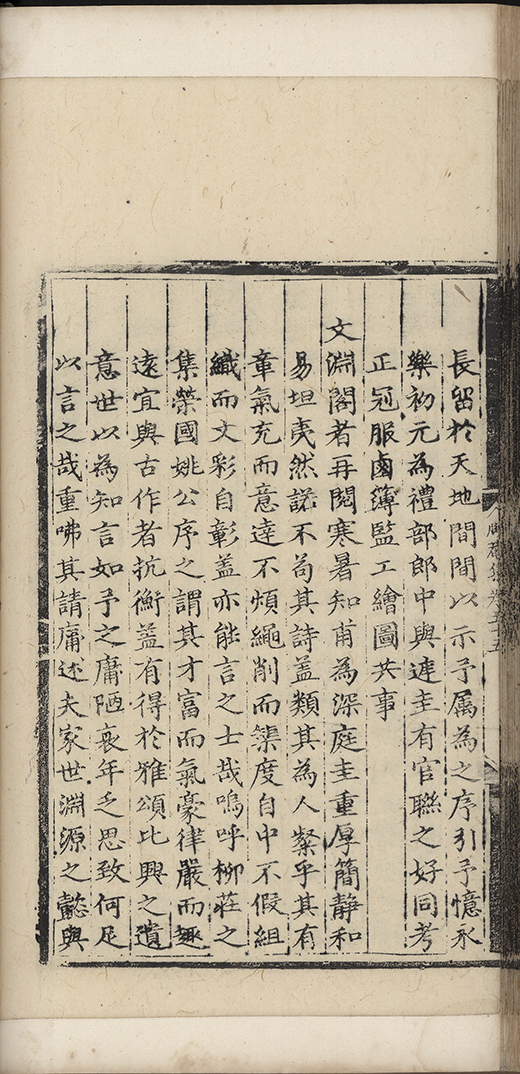 長留於天地間間以示予属為之序引予憶永
樂初元為禮部郎中與遽圭有官聯之好同考
正冠服鹵簿監工繪圖共事
文淵閣者再閱寒暑知甫為深庭圭重厚簡静和
易坦夷然諾不苟其詩盖類其為人粲乎其有
章氣充而意逹不煩繩削而榘度自中不假組
織而文彩自彰盖亦能言之士哉嗚呼柳莊之
集榮國姚公序之謂其才富而氣豪律嚴而趣
遠宜與古作者抗衡盖有得於雅頌比興之遺
意世以為知言如予之庸陋衰年乏思致何足
以言之哉重咈其請庸述夫家世淵源之懿與